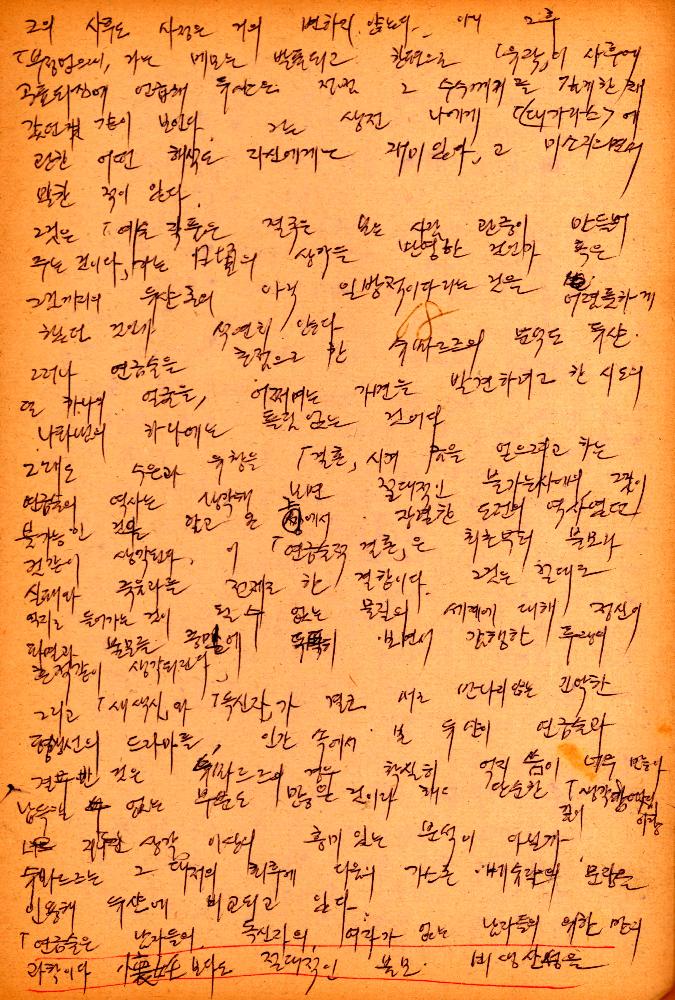 그의 사후도 사정은 거의 변하지 않는다. 아니 그후
「부정업으니, 가는 메모는 발표되고 한편으로 「유곽」이 사후에
공표되심에 언급해 두산은 점점 그 수수께끼를 깊게한 채
갔던것 같이 보인다. 그는 생전 나에게 「(대가라스)에
관한 어떤 해석도 자신에게는 재미있다」고 미소지으면서
말한 적이 있다.
그것은 「예술 작품은 결국은 보는 사람 관중이 만들어
주는 것이다」라는 日頃의 생각을 반영한 것인가 혹은
그것까지의 두산론의 아직 일방적이다라는 것을 어렴풋하게
했던 것인가 석연치 않다
그러나 연금술을 초점으로 한 슈바르즈의 분석도 두산.
또 하나의 얼굴을, 어쩌며는 가면을 발견하려고 한 시도의
나타남의 하나에는 틀림없는 것이다
그래도 수은과 유황을 「결혼」시켜 금을 얻으려고 하는
연금술의 역사는 생각해 보면 절대적인 불가능사에의 그것이
불가능한 것을 알고 온 에서 장렬한 도전의 역사였던
것같이 생각된다. 이 「연금술적 결혼」은 최초부터 불모나
실패와 죽음과를 전제로 한 결합이다. 그것은 절대로
들어가는 것이 될 수 없는 물질의 세계에 대해 정신이
파멸과 불모를 보면서 감행한 투쟁의
흔적같이 생각되진다」
그리고 「새색시」와 「독신자」가 결코 서로 만나지 않는 긴박한
평행선의 드라마를, 인간 속에서 본 두산이 연금술과
결부한 것은 슈바르즈의 경우 확실히 억지 씀이 너무 많아
납득할 수 없는 부분도 많을 것이라 해도 단순한 「생각
생각 이상의 흥미있는 분석이 아닐까
슈바르즈는 그 대저의 최후에 다음의 가스통 바슐라르의 문장을
인용해 두산에 비교되고 있다
「연금술은 남자들의, 독신자의, 여자가 없는 남자들의 위한 만의
과학이다 보다도 절대적인 불모. 비생산성을